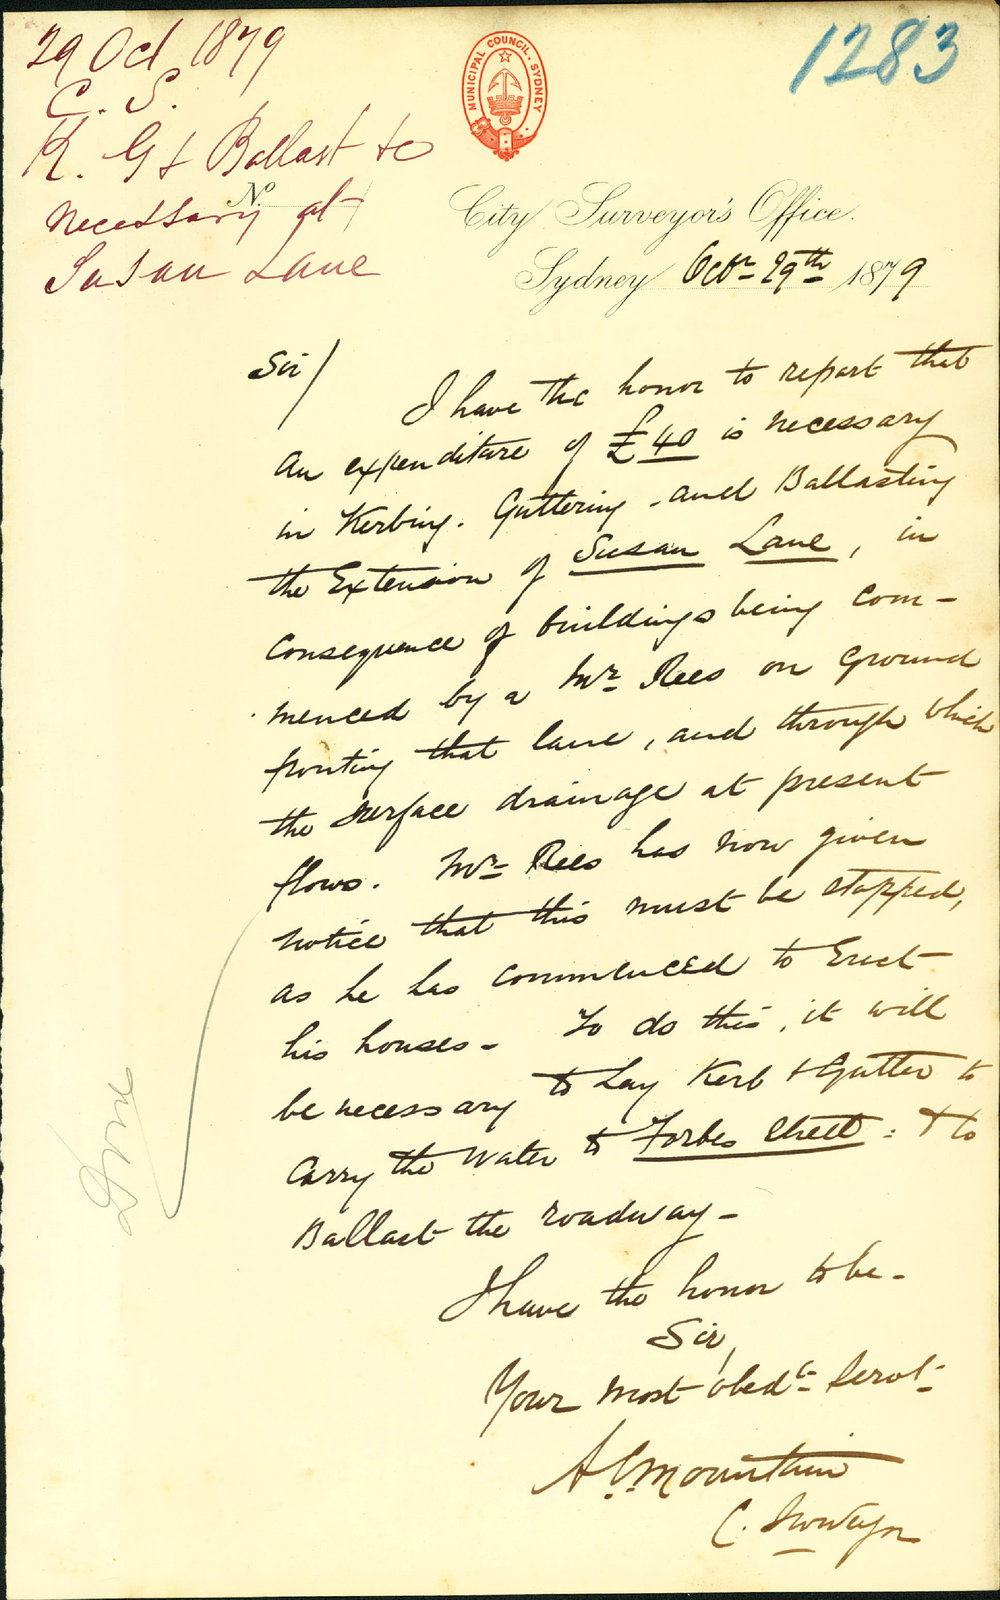 29 Oct 1879
C. S.
K. G & Ballast &c
necessary at
Susan Lane
1283
MUNICIPAL COUNCIL. SYDNEY
No.
City Surveyor's Office.
Sydney Octr 29th 1879
Sir/
I have the honor to report that
an expenditure of £40 is necessary
in Kerbing. Guttering - and Ballasting
the Extension of Susan Lane, in
consequence of buildings being com-
menced by a Mr Rees on ground
fronting that lane, and through which
the surface drainage at present
flows. Mr Rees has now given
notice that this must be stopped,
as he has commenced to Erect
his houses - To do this, it will
be necessary to Lay Kerb & Gutter to
carry the water to Forbes Street : & to
Ballast the roadway -
Done
I have the honor to be -
Sir,
Your most obedt Servt
A C Mountain
C. Surveyor